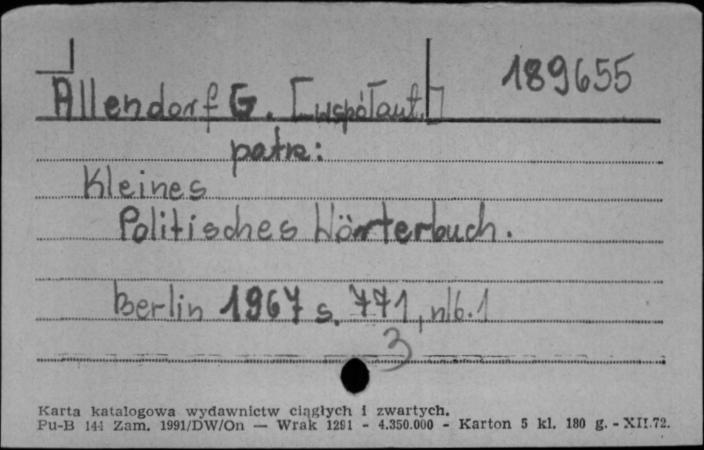 189655
Allendorf G. [współaut.]
patrz:
Kleines
Politisches Wörterbuch.
Berlin 1967 s. 771, nlb. 1
3
Karta katalogowa wydawnictw ciągłych i zwartych.
Pu-B 144 Zam. 1991/DW/On — Wrak 1291 - 4.350.000 - Karton 5 kl. 180 g. - XII.72.